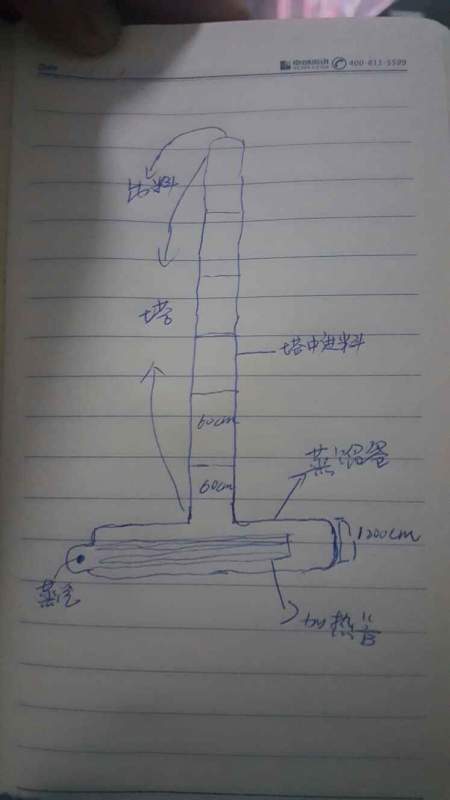 Date
400-811-5599
出料
塔
塔中进料
60cm
60cm
蒸馏釜
1200cm
蒸汽
加热管